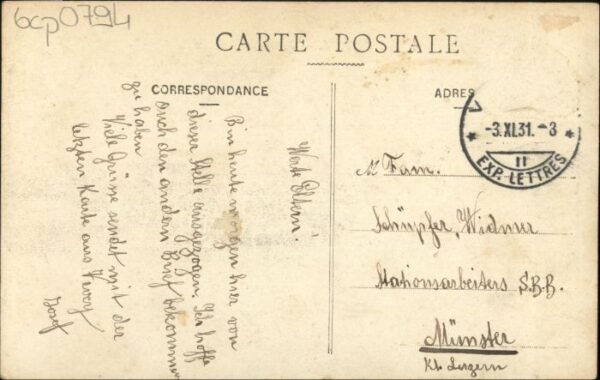 bcp0794
CARTE POSTALE
CORRESPONDANCE
ADRES
-3.XI.31.-3
II
EXP. LETTRES
Werte Eltern.
Bin heute morgen hier von
dieser Stelle ausgezogen. Ich hoffe
auch den andern Brief bekommen
zu haben
Viele Grüsse sendet mit der
letzten Karte aus Vevey
Josef
Fam.
Schüpfer, Widmer
Stationsarbeiters S.B.B.
Münster
Kt. Luzern